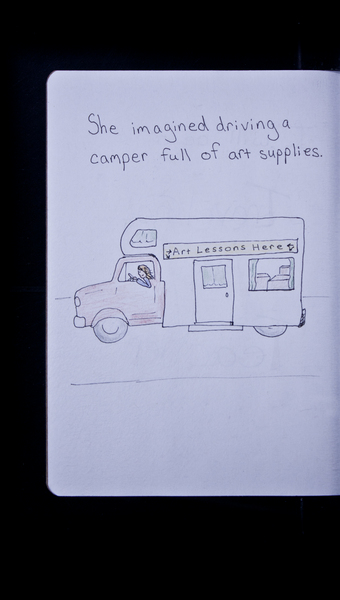 She imagined driving a
camper full of art supplies.
Art Lessons Here